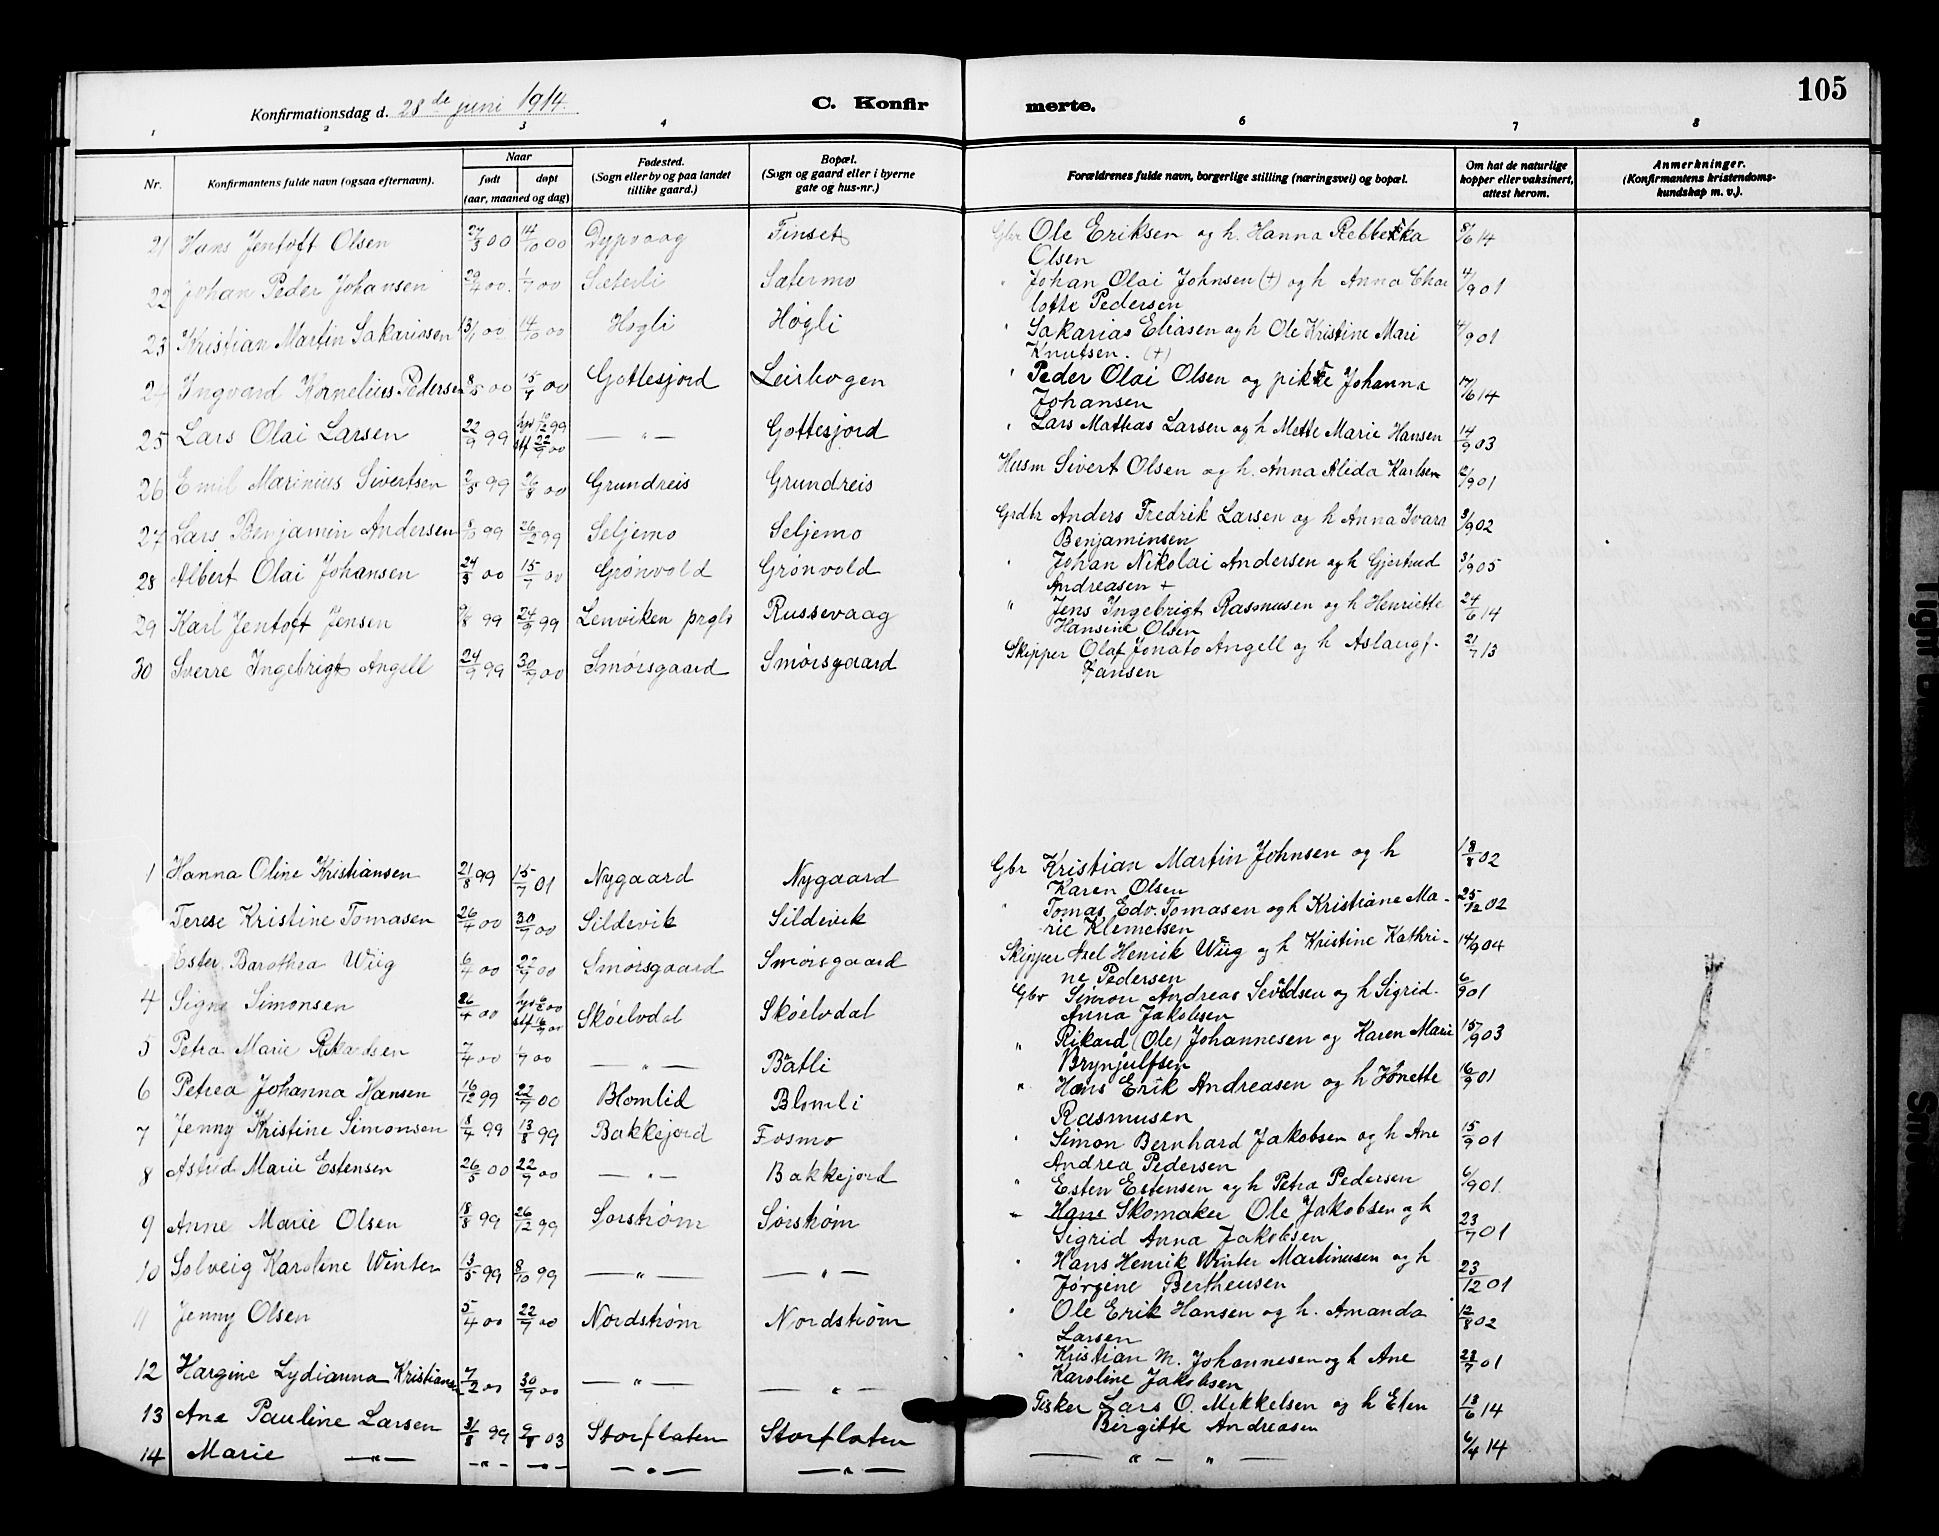 Konfirmationsdag d. 28de juni 1914.
C. Konfir
merte.
105
1 2 3 4 6 7 8
Nr.
Konfirmantens fulde navn (ogsaa efternavn).
Naar
født døpt
(aar, maaned og dag)
Fødested.
(Sogn eller by og paa landet
tillike gaard.)
Bopæl.
(Sogn og gaard eller i byerne
gate og hus-nr.)
Forældrenes fulde navn, borgerlige stilling (næringsvei) og bopæl.
Om hat de naturlige
kopper eller vaksinert,
attest herom.
Anmerkninger.
(Konfirmantens kristendoms-
kundskap m. v.).
21 Hans Jentoft Olsen 27/3 00 14/10 00 Dypvaag Finset Gbr Ole Eriksen og h. Hanna Rebbekka 8/6 14
Olsen
22 Johan Peder Johansen 29/4 00 1/7 00 Sæterli Satermo " Johan Olai Johnsen (+) og h Anna Char 4/9 01
lotte Pedersen
23 Kristian Martin Sakariassen 13/1 00 14/10 00 Høgli Høgli " Sakarias Eliasen og h Ole Kristine Mari 4/9 01
Knutsen. (+)
24 Ingvard Kornelius Pedersen 8/5 00 15/7 00 Gottesjord Leirbogen " Peder Olai Olsen og pike Johanna 17/6 14
Johansen
25 Lars Olai Larsen 22/9 99 99 stf 22/7 00 — " — Gottesjord " Lars Mathias Larsen og h Mette Marie Hansen 14/9 03
26 Emil Marinius Sivertsen 2/5 99 26/8 00 Grundreis Grundreis Husm Sivert Olsen og h. Anna Alida Karlsen 12/9 01
27 Lars Benjamin Andersen 8/10 99 26/12 99 Seljemo Seljemo Grdbr Anders Fredrik Larsen og h Anna Ivara 3/9 02
Benjaminsen
28 Albert Olai Johansen 24/3 00 15/7 00 Grønvold Grønvold " Johan Nikolai Andersen og h Gjertrud 3/9 05
Andreasen +
29 Karl Jentoft Jensen 9/8 99 24/9 99 Lenviken prgld Russevaag " Jens Ingebrigt Rasmusen og h Henriette 24/6 14
Hansine Olsen
30 Sverre Ingebrigt Angell 24/9 99 30/9 00 Smørsgaard Smørsgaard Skipper Olaf Jonato Angell og h Aslaug f. 21/7 13
Jansen
1 Hanna Oline Kristiansen 21/8 99 15/7 01 Nygaard Nygaard Gbr Kristian Martin Johnsen og h 18/8 02
Karen Olsen
Terese Kristine Tomasen 26/4 00 30/9 00 Sildevik Sildevik " Tomas Edv. Tomasen og h Kristiane Ma- 25/12 02
rie Klemetsen
Ester Barothea Wiig 6/4 00 22/7 00 Smørsgaard Smørsgaard Skipper Axel Henrik Wiig og h Kristine Kathri- 14/9 04
ne Pedersen
4 Signe Simonsen 26/4 00 00 stf 00 Skøelvdal Skøelvdal Gbr Simon Andreas Sevaldsen og h Sigrid 6/9 01
Anna Jakobsen
5 Petra Marie Rikardsen 7/4 00 1/7 00 — " — Båtli " Rikard (Ole) Johannesen og Karen Marie 15/9 03
Brynjulfsen
6 Petrea Johanna Hansen 16/12 99 22/7 00 Blomlid Blomli " Hans Erik Andreasen og h Jonette 16/9 01
Rasmusen
7 Jenny Kristine Simonsen 18/4 99 13/8 99 Bakkejord Fosmo " Simon Bernhard Jakobsen og h Ane 15/9 01
Andrea Pedersen
8 Astrid Marie Estensen 26/5 00 22/9 00 — " — Bakkejord " Esten Estensen og h Petra Pedersen 6/9 01.
9 Anne Marie Olsen 18/8 99 26/12 99 Sorstrøm Sørstrøm " Hans Skomaker Ole Jakobsen og h 23/7 01
Sigrid Anna Jakobsen
10 Solveig Karoline Winter 13/5 99 8/10 99 — " — — " — " Hans Henrik Winter Martinusen og h 23/12 01
Jørgine Bertheusen
11 Jenny Olsen 5/4 00 22/7 00 Nordstrøm Nordstrøm " Ole Erik Hansen og h. Amanda 12/8 02
Larsen
12 Hargine Lydianna Kristiansen 7/2 00 30/9 00 — " — — " — " Kristian M. Johannesen og h Ane 23/7 01
Karoline Jakobsen
13 Ane Pauline Larsen 31/8 99 9/8 03 Storflaten Storflaten Fisker Lars O. Mikkelsen og h Elen 13/6 14
Birgitte Andreasen
14 Marie — " — — " — — " — — " — — " — — " — " — 6/4 14